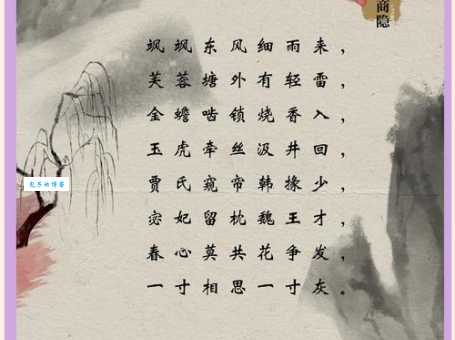 商隐
飒飒东风细雨来，
芙蓉塘外有轻雷，
金蟾啮锁烧香入，
玉虎牵丝汲井回，
贾氏窥帘韩掾少，
宓妃留枕魏王才，
春心莫共花争发，
一寸相思一寸灰。